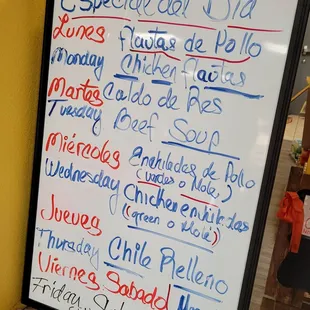 Especial del Dia
Lunes flautas de Pollo
Monday Chicken flautas
Martes Caldo de Res
Tuesday Beef Soup
Miércoles Enchiladas de Pollo
(verdes o Mole)
Wednesday Chicken enchiladas
(green o Mole)
Jueves
Thursday Chile Relleno
Viernes Sabado
Friday